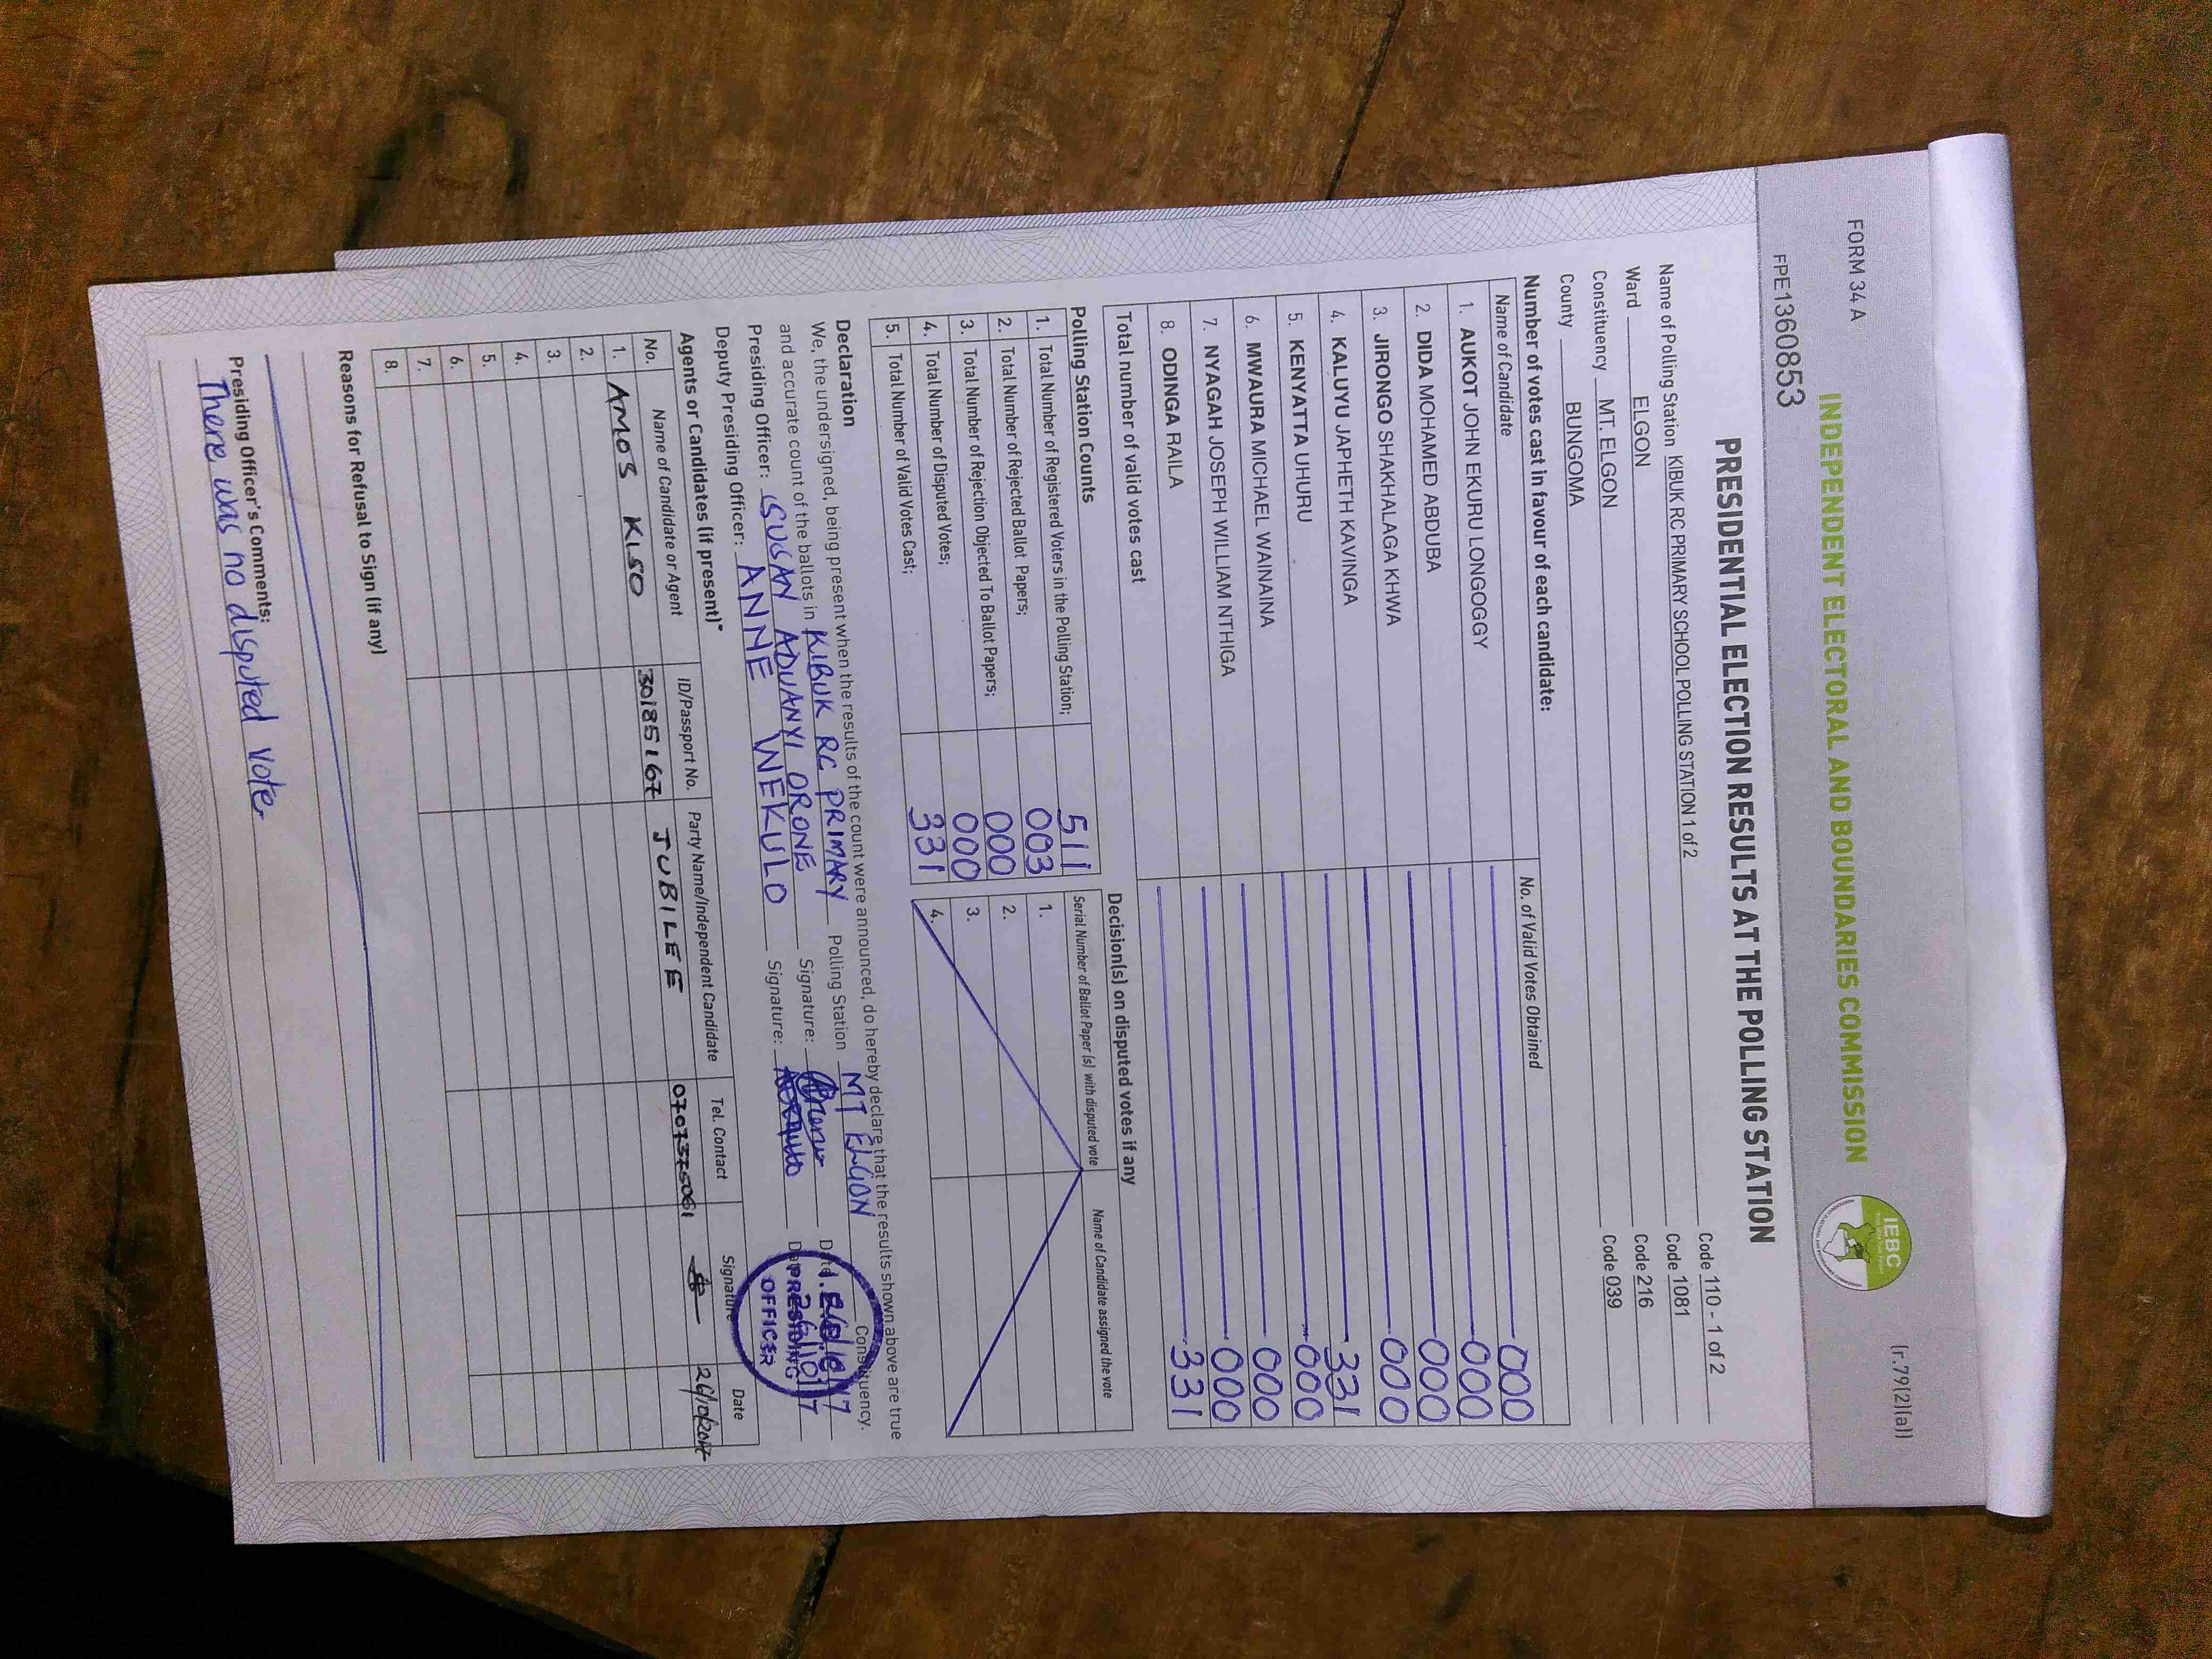 FORM 34 A
(r.79(2)(a))
INDEPENDENT ELECTORAL AND BOUNDARIES COMMISSION
IEBC
FPE13608 53
PRESIDENTIAL ELECTION RESULTS AT THE POLLING STATION
Name of Polling Station KIBUK RC PRIMARY SCHOOL POLLING STATION 1 of 2 Code 110 - 1 of 2
Ward ELGON Code 1081
Constituency MT. ELGON Code 216
County BUNGOMA Code 039
Number of votes cast in favour of each candidate:
Name of Candidate No. of Valid Votes Obtained
1. AUKOT JOHN EKURU LONGOGGY 000
2. DIDA MOHAMED ABDUBA 000
3. JIRONGO SHAKHALAGA KHWA 000
4. KALUYU JAPHETH KAVINGA 000
5. KENYATTA UHURU 331
6. MWAURA MICHAEL WAINAINA 000
7. NYAGAH JOSEPH WILLIAM NTHIGA 000
8. ODINGA RAILA 000
Total number of valid votes cast 331
Polling Station Counts
1. Total Number of Registered Voters in the Polling Station; 511
2. Total Number of Rejected Ballot Papers; 003
3. Total Number of Rejection Objected To Ballot Papers; 000
4. Total Number of Disputed Votes; 000
5. Total Number of Valid Votes Cast; 331
Decision(s) on disputed votes if any
Serial Number of Ballot Paper (s) with disputed vote Name of Candidate assigned the vote
1.
2.
3.
4.
Declaration
We, the undersigned, being present when the results of the count were announced, do hereby declare that the results shown above are true
and accurate count of the ballots in KIBUK RC PRIMARY Polling Station MT ELGON Constituency.
Presiding Officer: SUSAN ADUANYI ORONE Signature: Date
Deputy Presiding Officer: ANNE WEKULO Signature: Date 26/10/17
PRESIDING
OFFICER
Agents or Candidates (if present)*
No. Name of Candidate or Agent ID/Passport No. Party Name/Independent Candidate Tel. Contact Signature Date
1. AMOS KISO 30185167 JUBILEE 0707375061 26/10/2017
2.
3.
4.
5.
6.
7.
8.
Reasons for Refusal to Sign (if any)
Presiding Officer's Comments:
There was no disputed voter